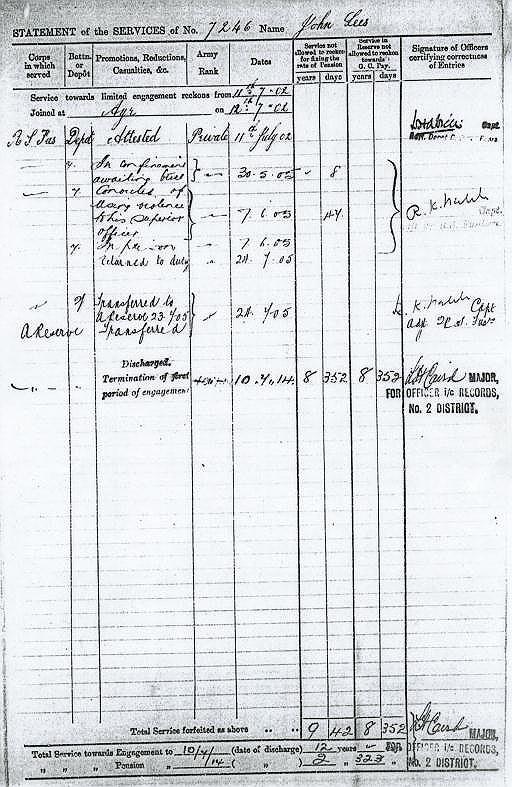 STATEMENT of the SERVICES of No. 7246 Name John Lees
Corps in which served
Battn. or Depôt
Promotions, Reductions, Casualties, &c.
Army Rank
Dates
Service not allowed to reckon for fixing the rate of Pension
years days
Service in Reserve not allowed to reckon towards G. C. Pay.
years days
Signature of Officers certifying correctness of Entries
Service towards limited engagement reckons from 11th 7-02
Joined at Ayr on 12th 7-02
R S Fus Depôt Attested Private 11th July 02
Capt.
— 2. In confinement
awaiting trial " 30.5.05 " 8
— 2. Convicted of
using violence
to his superior
officer " 7.6.05 47
R. K. Walsh Capt.
2. In prison " 7 6.05
returned to duty " 24 7.05
" 2/ Transferred to
A Reserve 23.7/05 " 24 7/05
K. Walsh Capt
Adj 2 R. S. Fus
A Reserve Transferred
Discharged.
Termination of first
period of engagement 10.7.14 8 352 8 352
Caird MAJOR,
FOR OFFICER i/c RECORDS,
No. 2 DISTRICT.
Total Service forfeited as above .. .. 9 42 8 352
Caird MAJOR,
FOR OFFICER i/c RECORDS,
No. 2 DISTRICT.
Total Service towards Engagement to 10/7/14 (date of discharge) 12 years "
" " " Pension " ( " ) 2 " 323 "